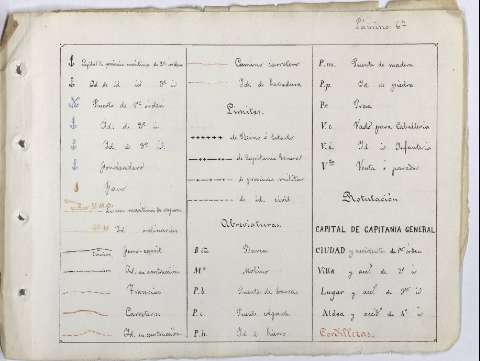 Lámina 6ª
Capital de provincia marítima de 2º orden
Id. de id. id. 3º id.
Puerto de 1er orden
Id. de 2º id.
Id. de 3er id.
Fondeadero
Faro
Id. ordinarias
Id. en construcción
Francés
Carretera
Id. en construcción
Camino carretero
Id. de herradura
Límites.
de Reino ó Estado
de Capitanía General
de provincia militar
de id. civil
Abreviaturas.
Bía Barca
Mº Molino
P.b. Puente de barcas
P.c. Puente colgado
P.h. Id. de hierro
P.m. Puente de madera
P.p. Id. de piedra
V.c. Vado para Caballería
V.i. Id. id. Infantería
Vta Venta ó parador
Rotulación
CAPITAL DE CAPITANIA GENERAL
CIUDAD y de 1er orden
Villa y 2º id.
Lugar y 3er id.
Aldea y 4º id.
Cordilleras.